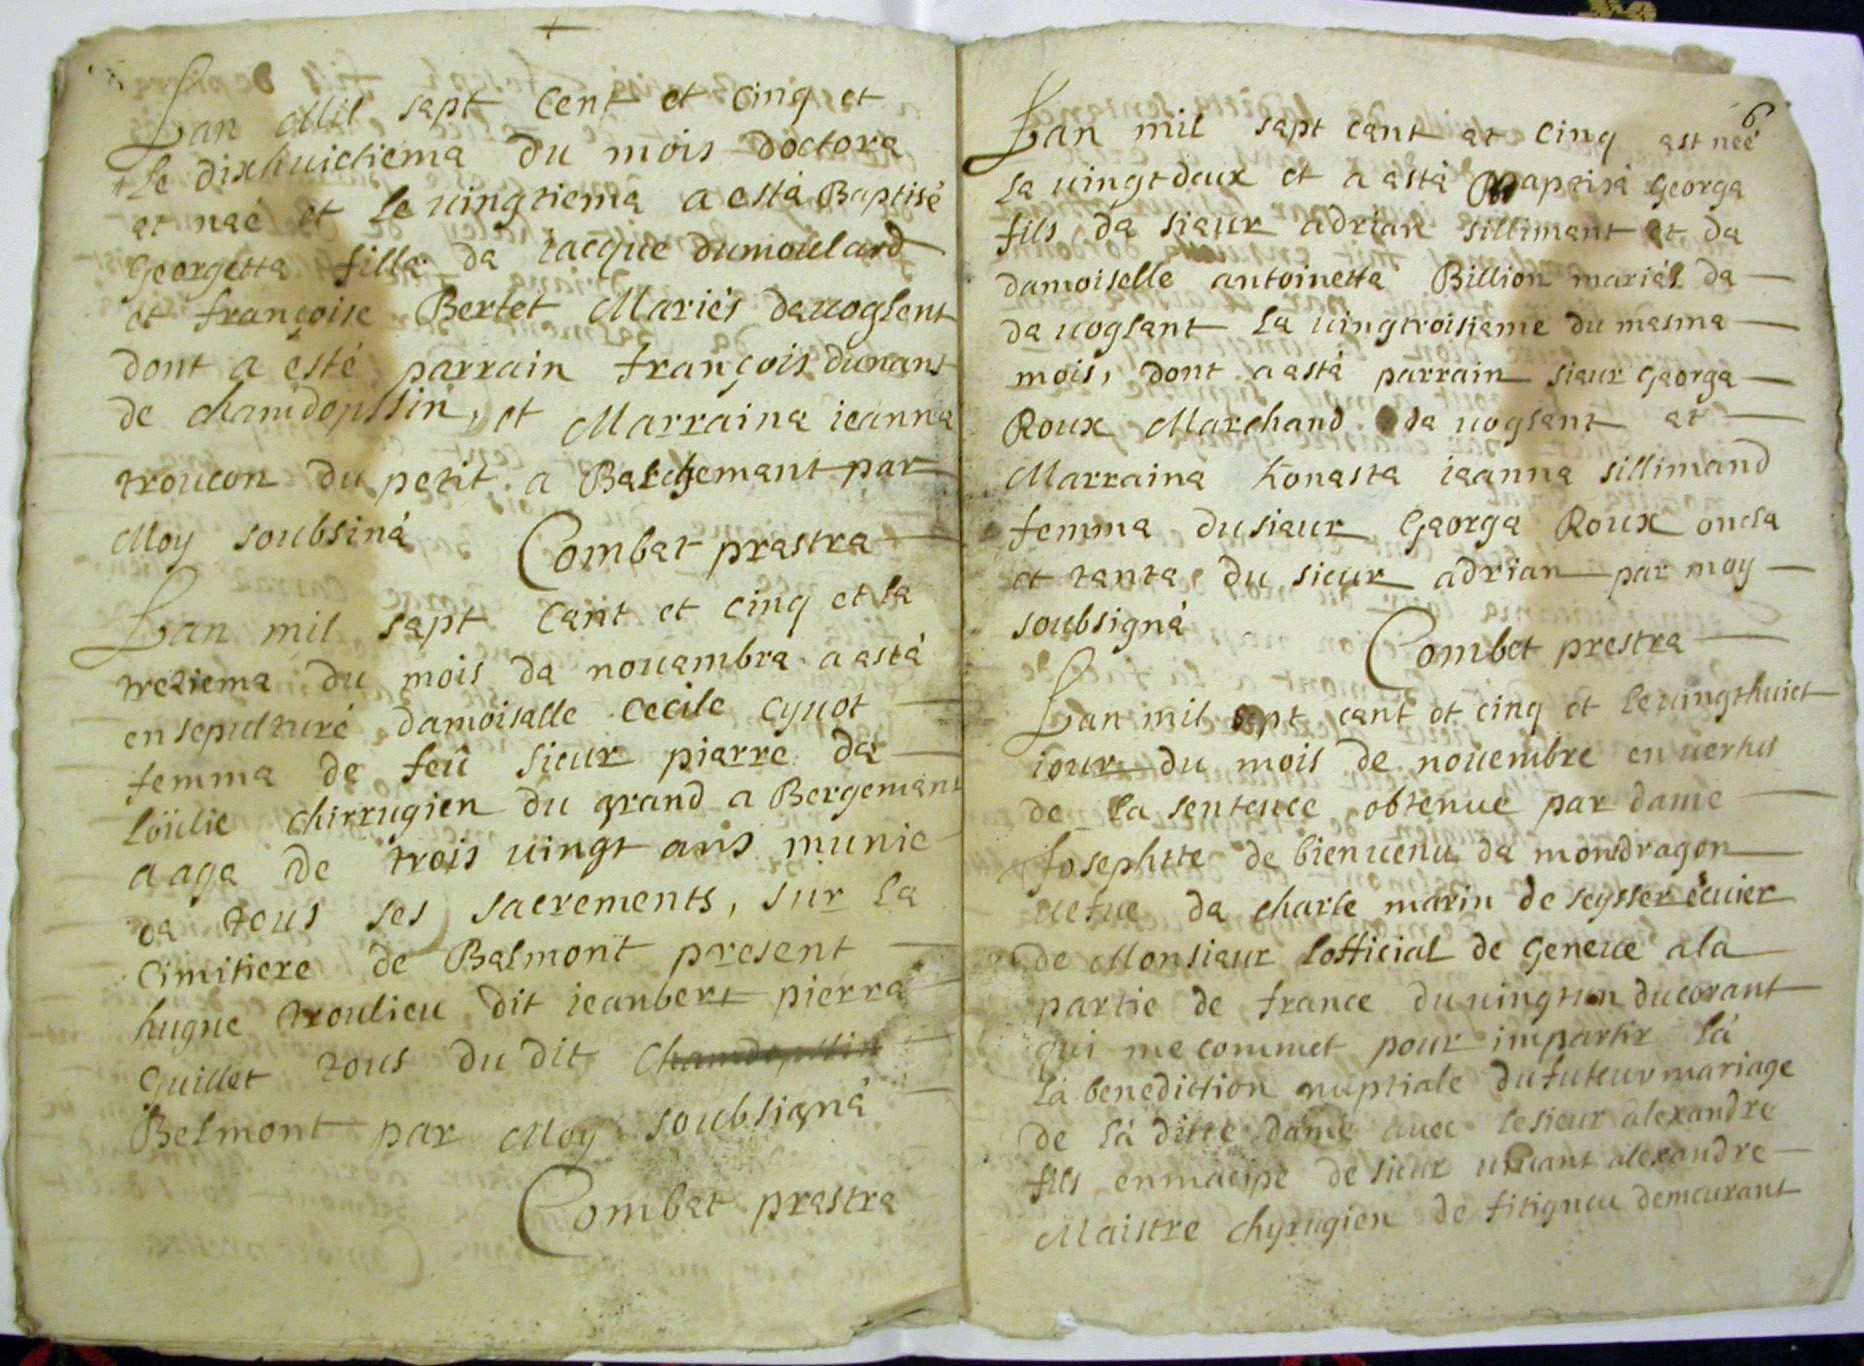 Lan Mil sapt Cent et Cinq et
Le dixhuictiema du mois doctora
et naé et le uingtiema a està Baptisé
Georgetta filla da iacque dumoulard
et françoise Bertet Mariés dauoglent
dont a esté parrain françois dunant
de chamdopssin, et Marraina ieanna
troucon du petit a Balchemant par
Moy soubsinà Combat prastra
Lan mil sapt Cant et cinq et la
treziema du mois da nouambra a astà
ensepulturé damoisalle Cecile Cyuot
femma de feû sieur piarre da
Loüilie chirrugien du grand a Bergemant
aaga de trois uingt ans munie
da tous ses sacrements, sur la
Cimitiere de Balmont present
hugue troulieu dit ieanbert pierra
Guillet tous du dit Chamdopssin
Belmont par Moy soubsignà
Combat prastra
6
Lan mil sapt cant at Cinq ast neé
La uingtdeux et a astà Baptisà Georga
fils da siaur adrian sillimant et da
damoiselle antoinetta Billion mariés da
da uoglant La uingtroisiame du masma
mois, dont a astà parrain siaur Gaorga
Roux Marchand da uoglant at
Marraina honasta iaanna sillimand
femma du siaur Gaorga Roux oncla
et tanta du sieur adrian par moy
soubsignà Combet prestra
Lan mil sept cant et cinq et le uingthuict
iour du mois de nouembre en uertus
de la sentence obtenue par dame
Josephtte de bienuenu da mondragon
uefue da charle marin de seysser ecuier
de Monsiaur Lofficial de Geneue a la
partie de france du uingtun du corant
qui me commet pour impartir là
La benediction nuptiale du futeur mariage
de là ditte dame auec le sieur alexandre
fils enmacipé de sieur uiuant alexandre
Maistre chyrugien de fitigneu demeurant